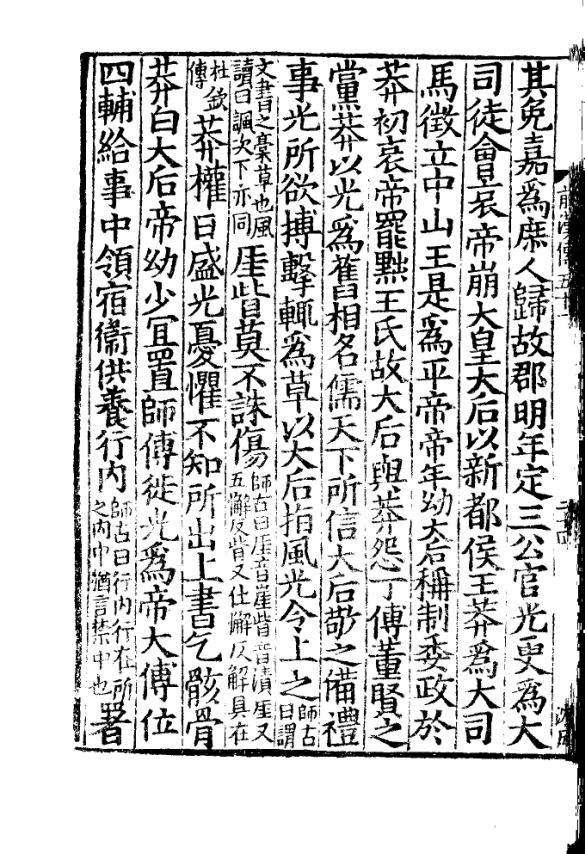 其免嘉爲庶人歸故郡明年定三公官光更爲大
司徒會哀帝崩大皇大后以新都侯王莽爲大司
馬徵立中山王是爲平帝帝年幼大后稱制委政於
莽初哀帝罷黜王氏故大后與莽怨丁傅董賢之
黨莽以光爲舊相名儒天下所信大后敬之備禮
事光所欲搏擊輒爲草以大后指風光令上之師古曰謂
文書之稾草也風讀曰諷次下亦同厓眥莫不誅傷師古曰厓音崖眥音漬厓又五懈反眥又仕懈反解具在
杜欽傳莽權日盛光憂懼不知所出上書乞骸骨
莽白大后帝幼少宜置師傅徙光爲帝大傅位
四輔給事中領宿衞供養行内師古曰行内行在所之内中猶言禁中也署